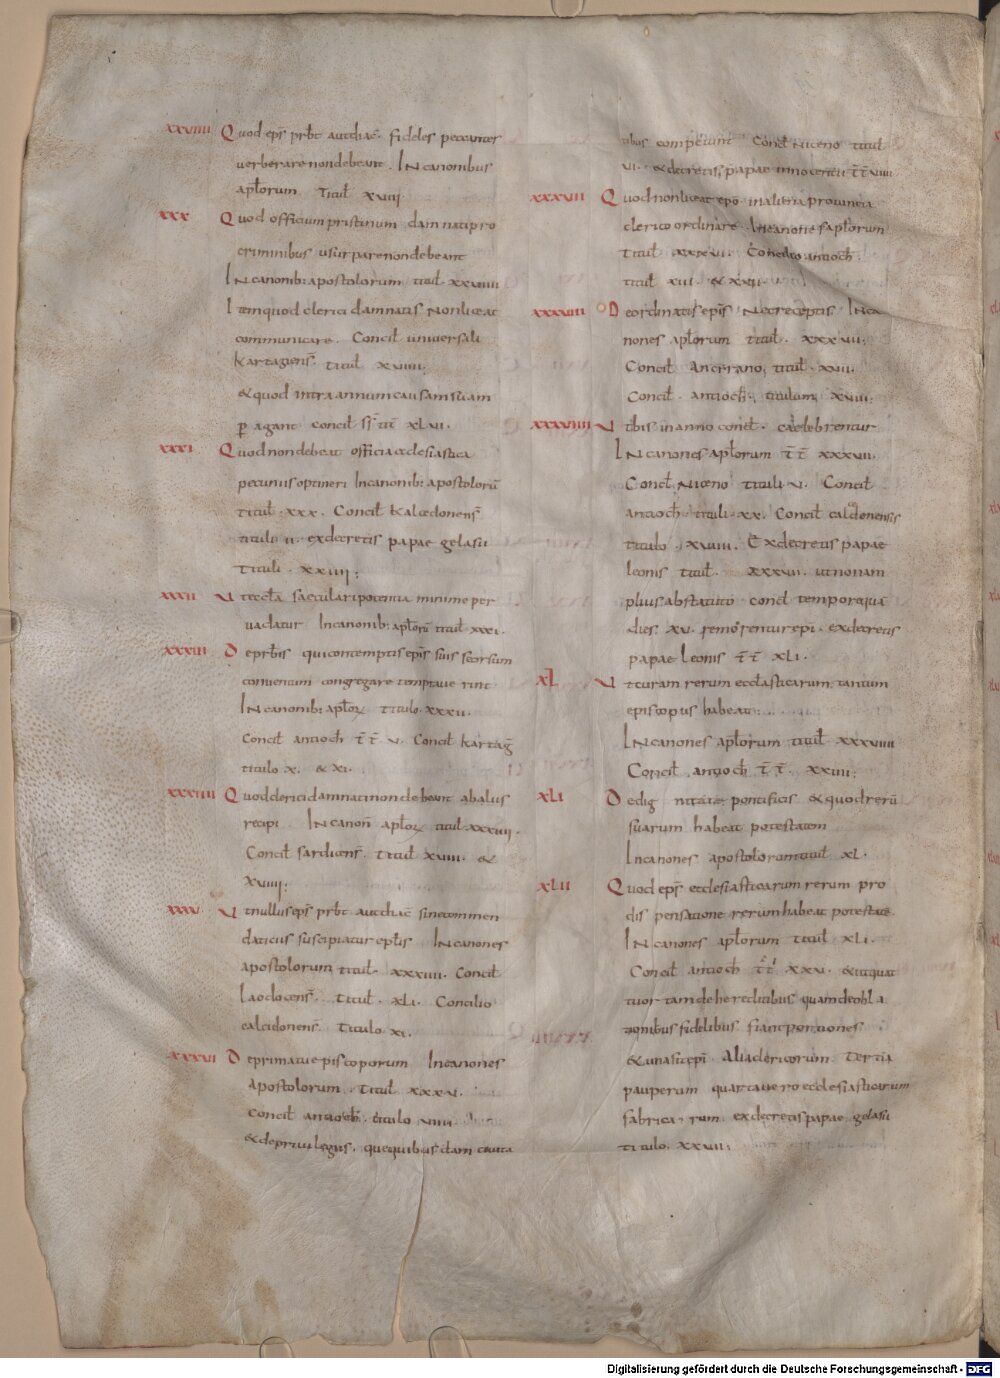 xxviiii Quod eps prbt aut diac fideles peccantes
verberare non debeant. In canonibus
aplorum Titul xxviii
xxx Quod officium pristinum damnati pro
criminibus usurpare non debeant
In canonib: apostolorum titul xxviiii
Item quod clerici damnatis non liceat
communicare. Concil universali
kartagiens. titul xviiii.
& quod intra annum causam suam
p agant concil ss tit xlvi.
xxxi Quod non debeat officia ecclesiastica
pecuniis optineri In canonib: apostoloru
titul. xxx. Concil kalcedonens
titulu ii. ex decretis papae gelasii
Tituli. xxiiii;
xxxii Ut eccla saeculari potentia minime per
vadatur In canonib: aploru titul xxxi.
xxxiii De prbis qui contemptis epis suis seorsum
conventum congregare temptaverint
In canonib: aplor Titulo. xxxii.
Concil antioch tt v. Concil kartag
titulo x. & xi.
xxxiiii Quod clerici damnati non debeant ab aliis
recipi In canon aplor titul. xxxiii.
Concil sardicens. Titul xviii. &
xviiii;
xxxv. Ut nullus eps prbt aut diac sine commen
daticiis suscipiatur eplis In canones
apostolorum titul. xxxiiii. Concil
laodocens. Titul. xli. Concilio
calcidonens. Titulo xi.
xxxvi De primatu episcoporum In canones
apostolorum. Titul xxxv.
Concil antioch. titulo viiii.
& de privilegiis. que quibusdam civita
tibus competunt Concil Niceno titul
vi. & decretis papae innocentii tt xviii
xxxvii Quod non liceat epo in alteria provincia
clerico ordinare. In canones aplorum
Titul xxxvi. Concilio antioch.
titul xiii. & xxii.
xxxviii De ordinatis epis Nec receptis In ca
nones aplorum titul. xxxvii;
Concil Ancirano, titul. xviii;
Concil. antioch; titulum xviii;
xxxviiii Ut bis in anno concil. caelebrentur
In canones aplorum tt xxxvii.
Concil Niceno tituli v. Concil
antioch. tituli. xx. Concil calcidonensis
titulo. xviiii. Ex decretis papae
leonis titul. xxxvii. ut non am
plius ab statuto concil tempore qua
dies xv. remorentur epi. ex decretis
papae leonis tt xli.
xl Ut curam rerum ecclasticarum tantum
episcopus habeat:
In canones aplorum titul xxxviiii
Concil antioch tt. xxiiii;
xli De dignitate pontificis & quod reru
suarum habeat potestatem
In canones apostolorum titul xl.
xlii Quod eps ecclesiasticarum rerum pro
dispensatione rerum habeat potestate
In canones aplorum titul xli.
Concil antioch tt xxv. & ut quat
tuor tam de hereditibus quam de obla
tionibus fidelibus. fiant portiones
& una sit epi. Alia clericorum. Tertia
pauperum quarta vero ecclesiasticarum
fabricarum. ex decretis papae gelasii
titulo. xxvii;
Digitalisierung gefördert durch die Deutsche Forschungsgemeinschaft - DFG